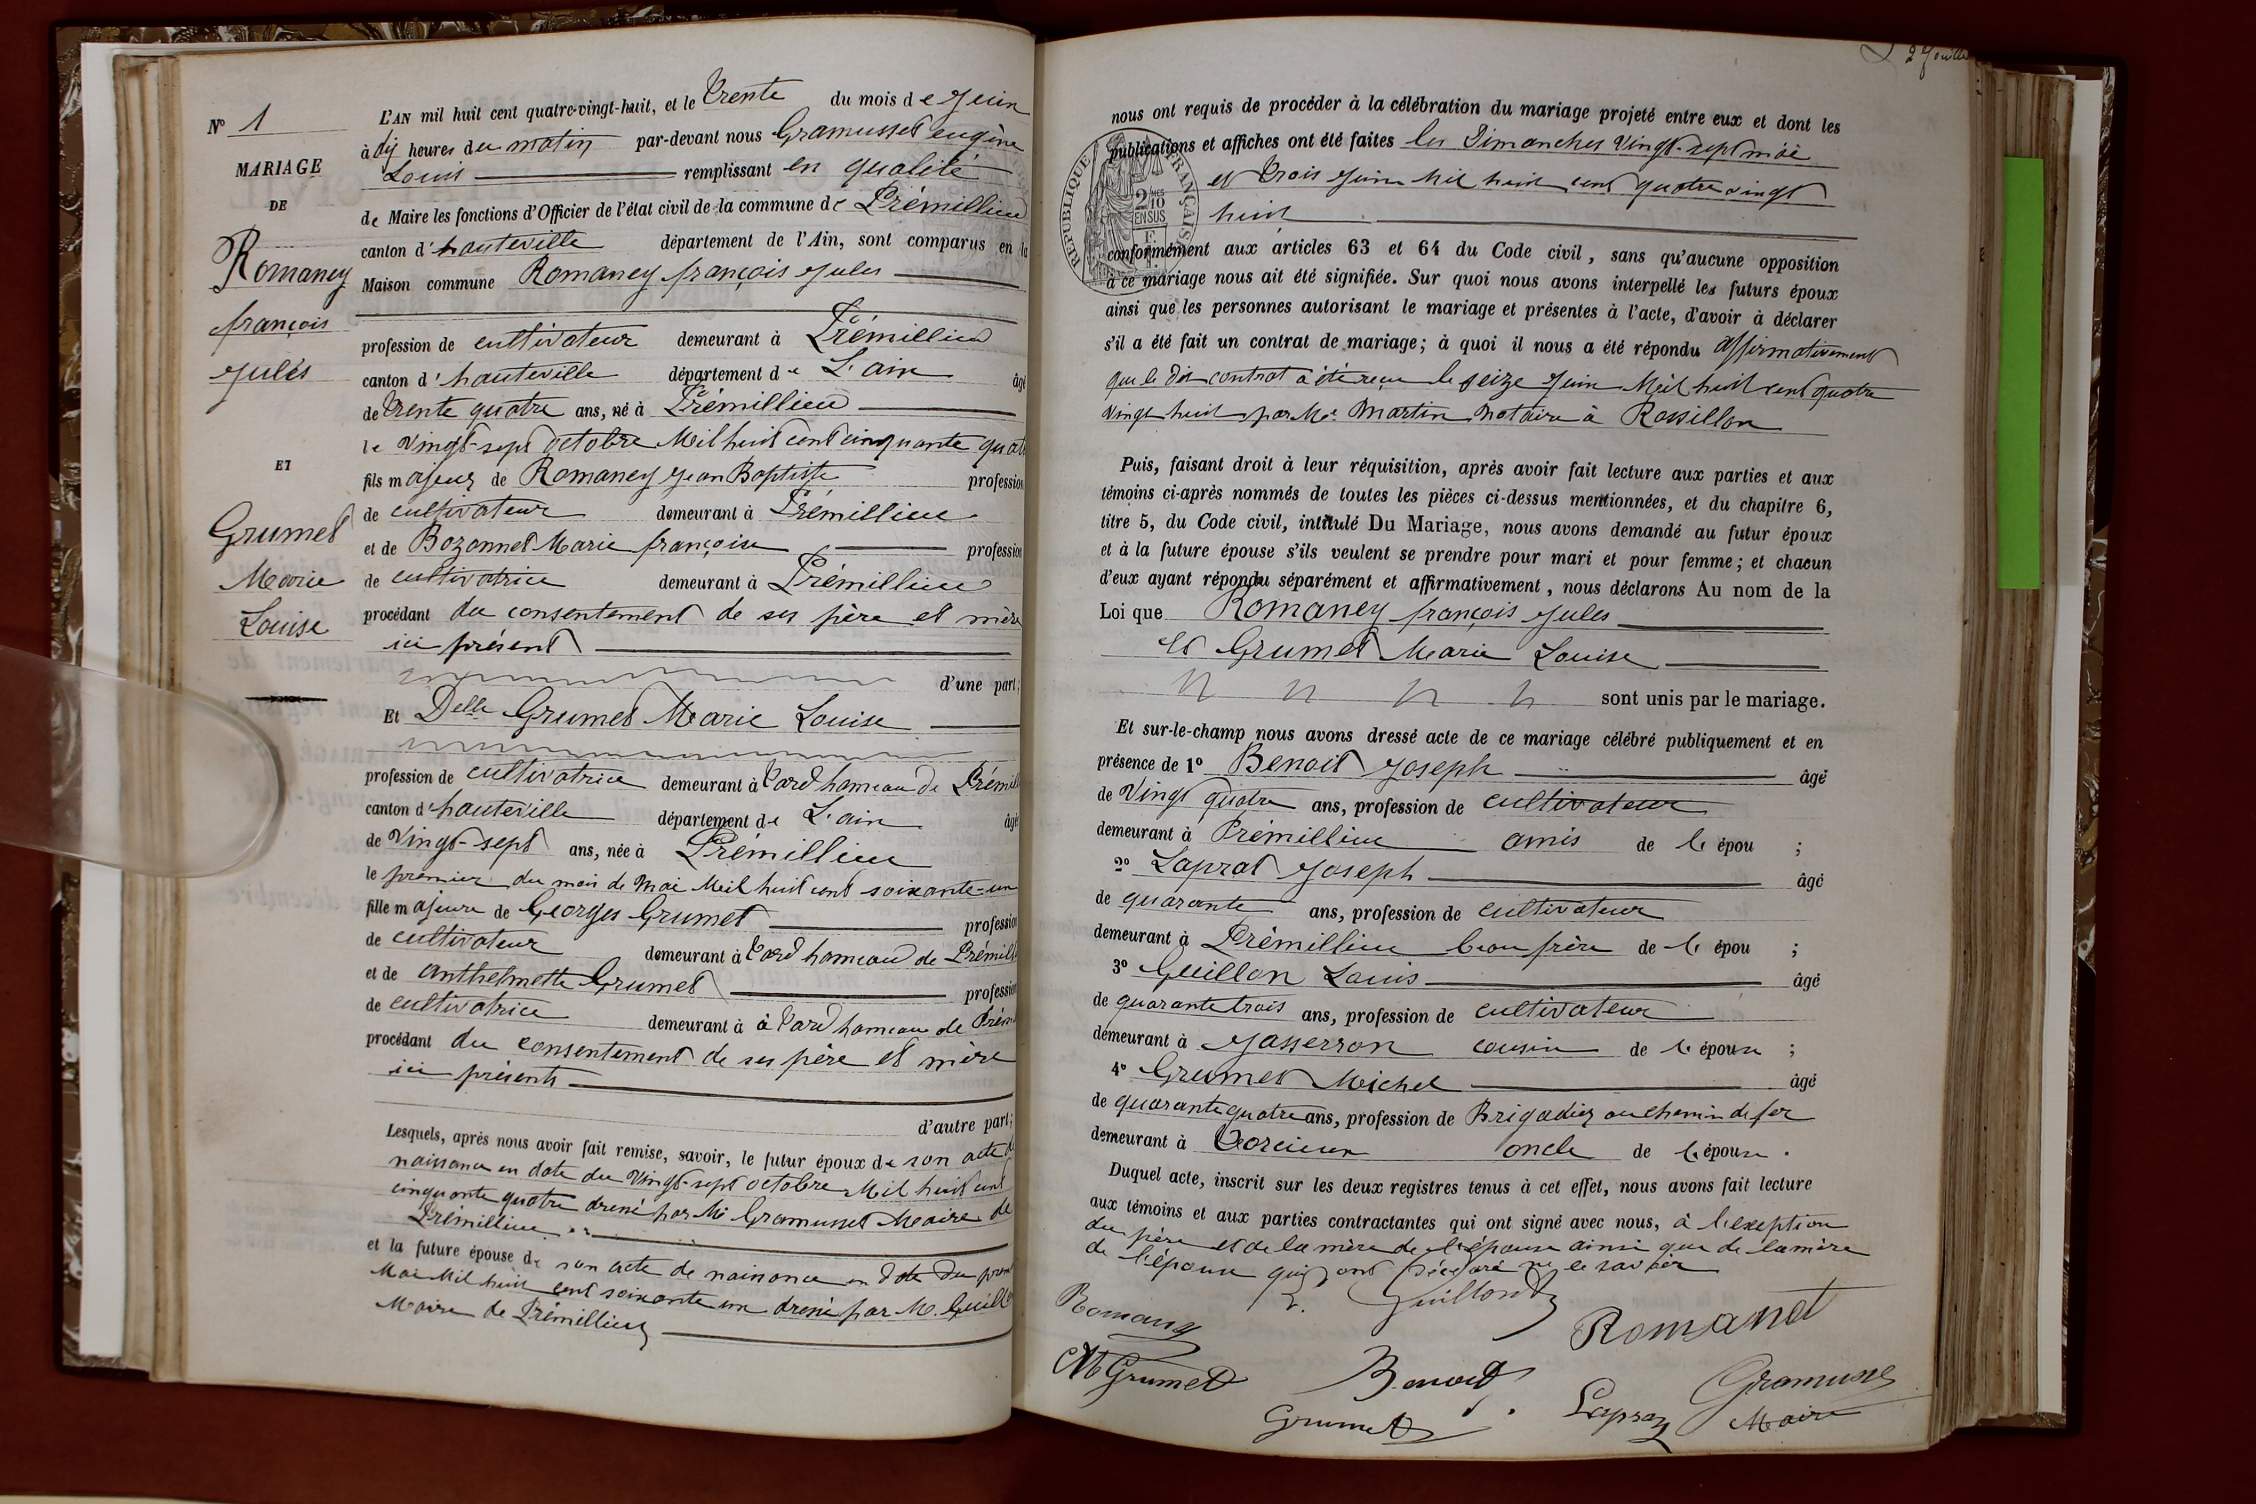 N° 1
MARIAGE
DE
Romaney
françois
Jules
ET
Grumet
Marie
Louise
L'AN mil huit cent quatre-vingt-huit, et le trente du mois de Juin
à dix heures du matin par-devant nous Gramusset eugène
Louis remplissant en qualité
de Maire les fonctions d'Officier de l'état civil de la commune de Prémillieu
canton d'hauteville département de l'Ain, sont comparus en la
Maison commune Romaney françois Jules
profession de cultivateur demeurant à Prémillieu
canton d'hauteville département de L'ain âgé
de trente quatre ans, né à Prémillieu
le vingt-sept octobre Mil huit cent cinquante quat
fils majeur de Romaney Jean Baptiste profession
de cultivateur demeurant à Prémillieu
et de Bozonnet Marie françoise profession
de cultivatrice demeurant à Prémillieu
procédant du consentement de ses père et mère
ici présent
d'une part;
Et Delle Grumet Marie Louise
profession de cultivatrice demeurant à tard hameau de Prémill
canton d'hauteville département de L'ain âgé
de vingt-sept ans, née à Prémillieu
le premier du mois de Mai Mil huit cent soixante-un
fille majeure de Georges Grumet profession
de cultivateur demeurant à tard hameau de Prémill
et de anthelmette Grumet profession
de cultivatrice demeurant à à tard hameau de Prém
procédant du consentement de ses père et mère
ici présents
d'autre part;
Lesquels, après nous avoir fait remise, savoir, le futur époux de son acte de
naissance en date du vingt-sept octobre Mil huit cent
cinquante quatre dressé par Mr Gramusset Maire de
Prémillieu
et la future épouse de son acte de naissance en date du prem
Mai Mil huit cent soixante un dressé par M. Guill
Maire de Prémillieu
nous ont requis de procéder à la célébration du mariage projeté entre eux et dont les
publications et affiches ont été faites les Dimanches vingt-sept mai
et trois Juin Mil huit cent quatre vingt
huit
RÉPUBLIQUE FRANÇAISE
2/10 EN SUS
conformément aux articles 63 et 64 du Code civil, sans qu'aucune opposition
à ce mariage nous ait été signifiée. Sur quoi nous avons interpellé les futurs époux
ainsi que les personnes autorisant le mariage et présentes à l'acte, d'avoir à déclarer
s'il a été fait un contrat de mariage; à quoi il nous a été répondu affirmativement
que le dit contrat a été reçu le seize Juin Mil huit cent quatre
vingt huit par Me Martin notaire à Rossillon
Puis, faisant droit à leur réquisition, après avoir fait lecture aux parties et aux
témoins ci-après nommés de toutes les pièces ci-dessus mentionnées, et du chapitre 6,
titre 5, du Code civil, intitulé Du Mariage, nous avons demandé au futur époux
et à la future épouse s'ils veulent se prendre pour mari et pour femme; et chacun
d'eux ayant répondu séparément et affirmativement, nous déclarons Au nom de la
Loi que Romaney françois Jules
et Grumet Marie Louise
sont unis par le mariage.
Et sur-le-champ nous avons dressé acte de ce mariage célébré publiquement et en
présence de 1° Benoit Joseph âgé
de vingt quatre ans, profession de cultivateur
demeurant à Prémillieu amis de l'épou ;
2° Laprat Joseph âgé
de quarante ans, profession de cultivateur
demeurant à Prémillieu beau frère de l'épou ;
3° Guillon Louis âgé
de quarante trois ans, profession de cultivateur
demeurant à cousin de l'épouse ;
4° Grumet Michel âgé
de quarante quatre ans, profession de Brigadier au chemin de fer
demeurant à oncle de l'épouse.
Duquel acte, inscrit sur les deux registres tenus à cet effet, nous avons fait lecture
aux témoins et aux parties contractantes qui ont signé avec nous, à l'exeption
du père et de la mère de l'épouse ainsi que de la mère
de l'époux qui ont déclaré ne le savoir
Guillond
Romany
Romanet
M Grumet
Benoit
Gramusset
Grumet
Laprat
Maire